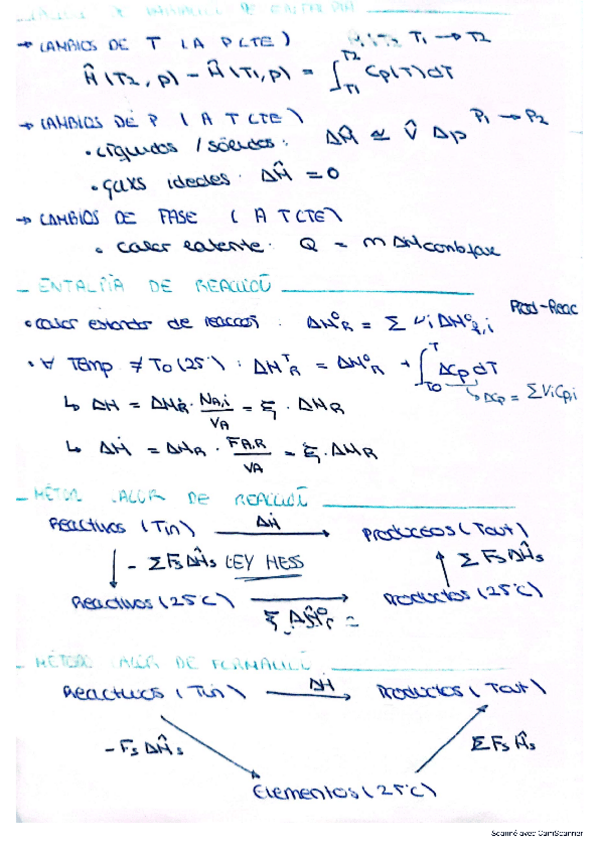 → CAMBIOS DE T (A P CTE) T1 → T2
Ĥ(T2, p) - Ĥ(T1, p) = ∫T1T2 Cp(T)dT
→ CAMBIOS DE P (A T CTE) P1 → P2
• Líquidos / sólidos: ΔĤ ≃ V̂ Δp
• gases ideales: ΔĤ = 0
→ CAMBIOS DE FASE (A T CTE)
• calor latente: Q = m ΔĤcambfase
ENTALPÍA DE REACCIÓ
Prod-Reac
• calor estandar de reacció: ΔH°R = Σ νi ΔH°f,i
• ∀ Temp ≠ T0 (25°): ΔHTR = ΔH°R + ∫T0T ΔCp dT
↳ ΔCp = Σ νi Cp,i
↳ ΔH = ΔHR · NA,i / νA = ξ · ΔHR
↳ ΔḢ = ΔHR · FA,R / νA = ξ̇ · ΔHR
MÈTODE CALOR DE REACCIÓ
Reactivos (Tin) ΔḢ → Productos (Tout)
↓ - ΣFsΔĤs LEY HESS ↑ ΣFsΔĤs
Reactivos (25°C) → Productos (25°C)
ξ ΔĤ°r =
MÈTODE CALOR DE FORMACIÓ
Reactivos (Tin) ΔḢ → Productos (Tout)
-FsΔĤs ΣFsĤs
Elementos (25°C)
Scanné avec CamScanner